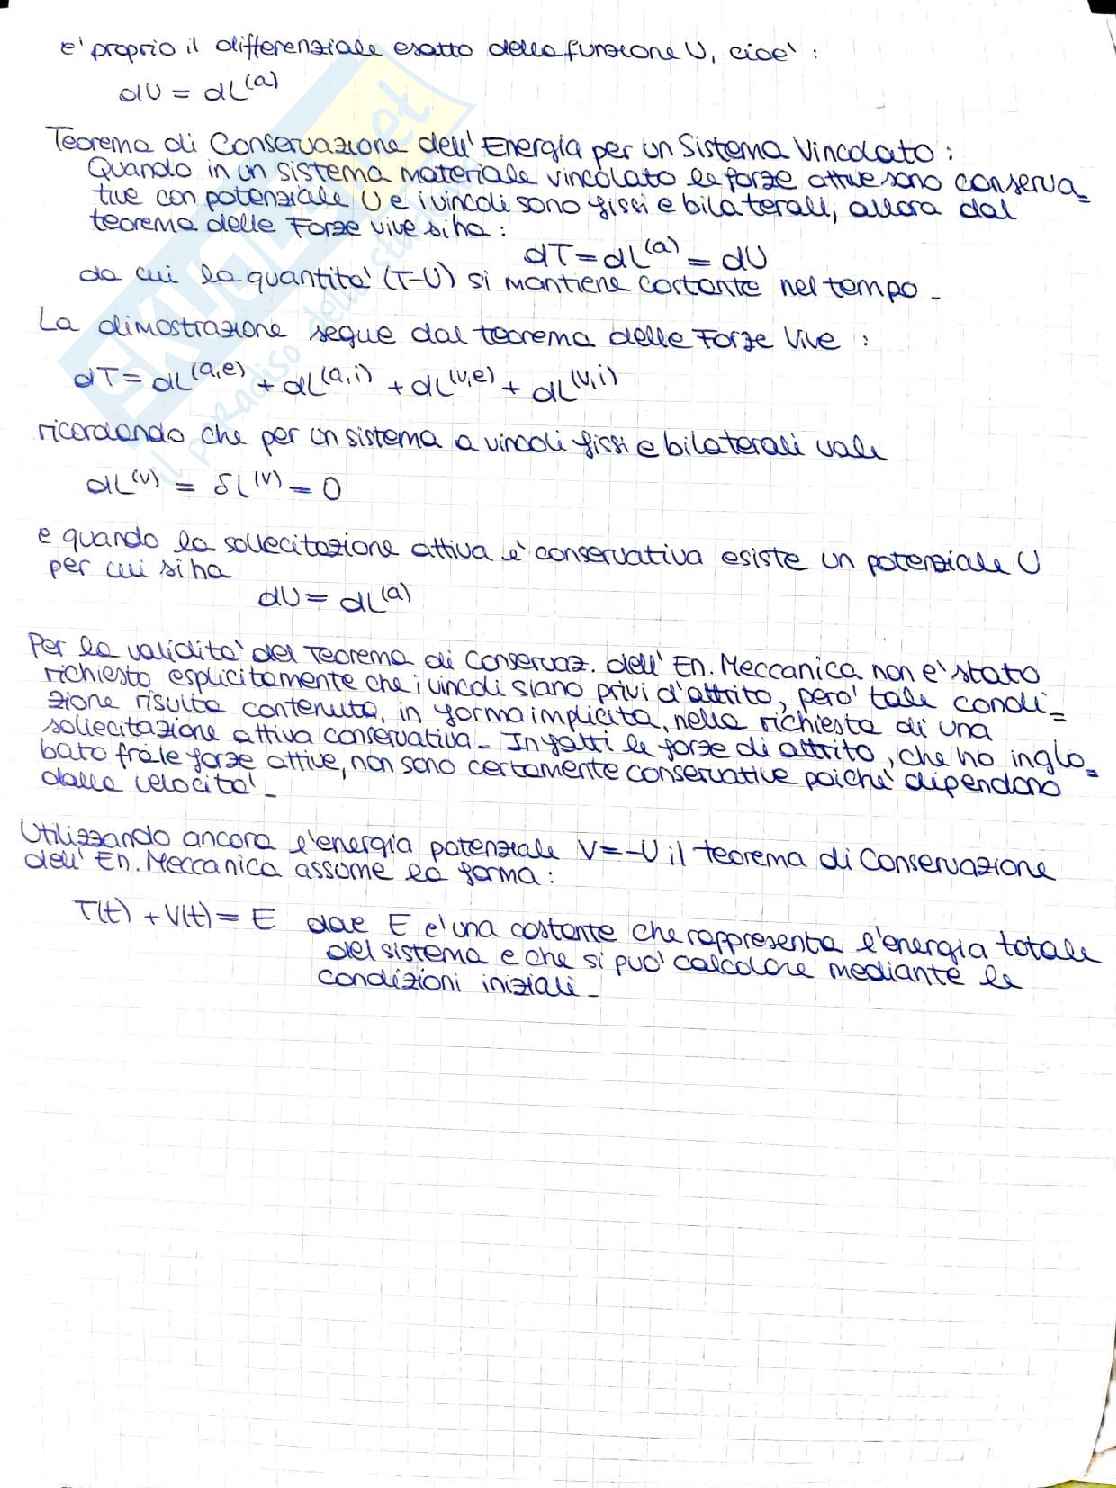 e' proprio il differenziale esatto della funzione U, cioe' :
dU = dL(a)
Teorema di Conservazione dell' Energia per un Sistema Vincolato :
Quando in un sistema materiale vincolato le forze attive sono conserva=
tive con potenziale U e i vincoli sono fissi e bilaterali, allora dal
teorema delle Forze vive si ha :
dT = dL(a) = dU
da cui la quantita' (T-U) si mantiene costante nel tempo -
La dimostrazione segue dal teorema delle Forze Vive :
dT = dL(a,e) + dL(a,i) + dL(v,e) + dL(v,i)
ricordando che per un sistema a vincoli fissi e bilaterali vale
dL(v) = δL(v) = 0
e quando la sollecitazione attiva e' conservativa esiste un potenziale U
per cui si ha
dU = dL(a)
Per la validita' del Teorema di Conservaz. dell' En. Meccanica non e' stato
richiesto esplicitamente che i vincoli siano privi d'attrito, pero' tale condi=
zione risulta contenuta, in forma implicita, nella richiesta di una
sollecitazione attiva conservativa - Infatti le forze di attrito, che ho inglo=
bato fra le forze attive, non sono certamente conservative poiche' dipendono
dalla velocita' -
Utilizzando ancora l'energia potenziale V=-U il teorema di Conservazione
dell' En. Meccanica assume la forma :
T(t) + V(t) = E dove E e' una costante che rappresenta l'energia totale
del sistema e che si puo' calcolare mediante le
condizioni iniziali -
SKUOLA.net
il paradiso dello studente